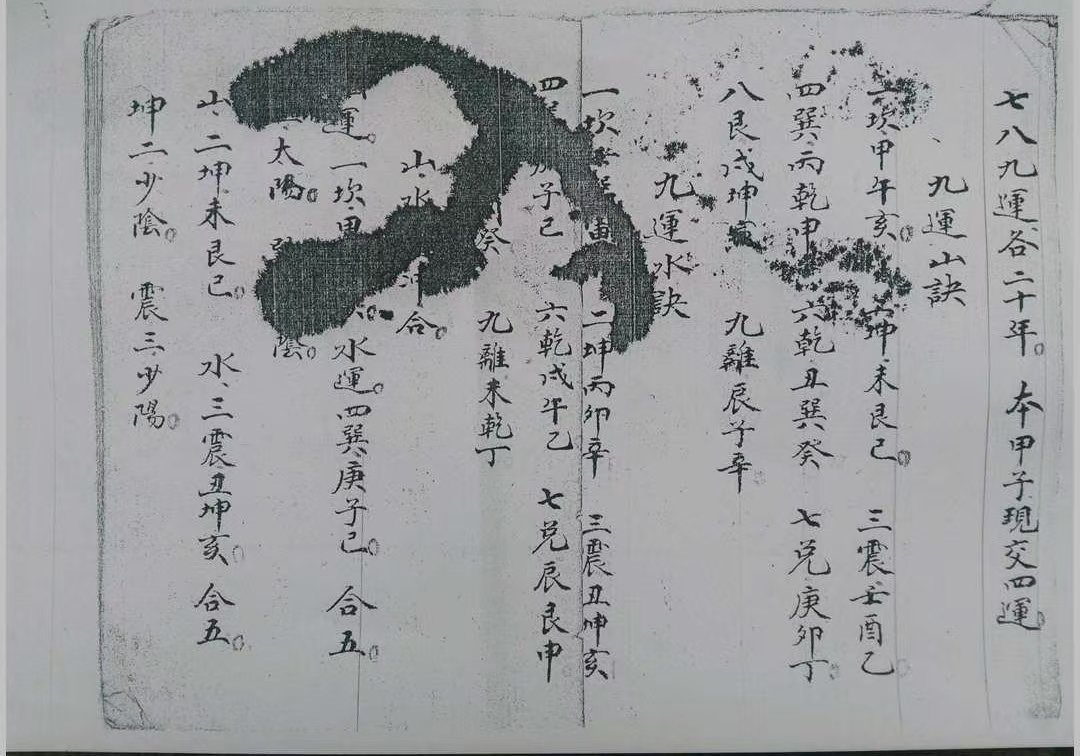 七八九運各二十年。本甲子現交四運。
九運山訣
坎甲午亥。坤未艮巳。三震壬酉乙
四巽丙乾申 六乾丑巽癸 七兌庚卯丁
八艮戌坤 九離辰子辛。
九運水訣
一坎 二坤丙卯辛 三震丑坤亥
四 子巳 六乾戌午乙 七兌辰艮申
癸 九離未乾丁
山水 合。
運。一坎甲 水運。四巽庚子巳。合五。
太陽。 陰。
山、二坤未艮巳。水、三震丑坤亥。合五。
坤二少陰。震三少陽。